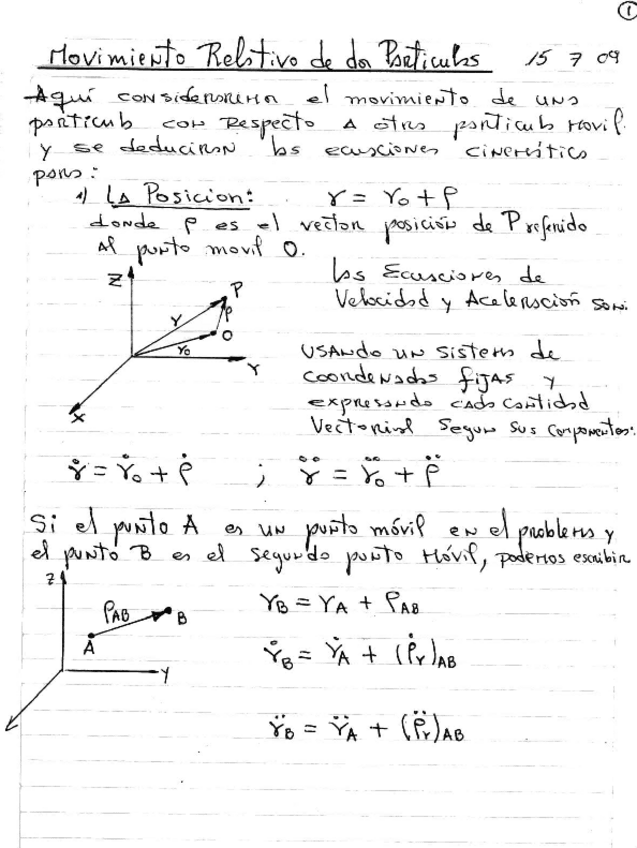 1
Movimiento Relativo de dos Particulas 15 7 09
Aquí consideraremos el movimiento de una
particula con respecto a otra particula movil.
y se deduciran las ecuaciones cinemática
para:
1) La Posicion: r = r₀ + ρ
donde ρ es el vector posición de P referido
al punto movil O.
Las Ecuaciones de
Velocidad y Aceleración son:
Z
P
r
ρ
O
r₀
Y
X
Usando un sistema de
coordenadas fijas y
expresando cada cantidad
Vectorial segun sus componentes:
ṙ = ṙ₀ + ρ̇ ; r̈ = r̈₀ + ρ̈
Si el punto A es un punto móvil en el problema y
el punto B es el segundo punto móvil, podemos escribir
z
ρAB
B
A
y
rB = rA + ρAB
ṙB = ṙA + (ρ̇r)AB
r̈B = r̈A + (ρ̈r)AB